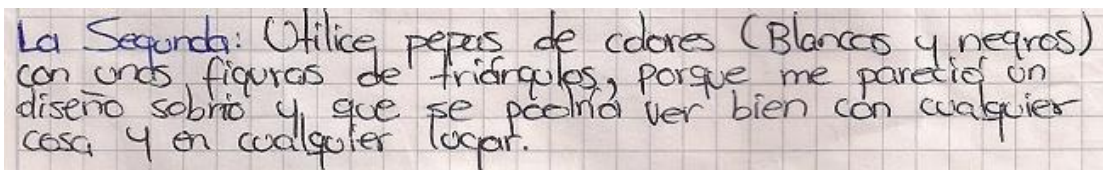 La Segunda: Utilice pepas de colores (Blancas y negras)
con unas figuras de triángulos, porque me pareció un
diseño sobrio y que se podría ver bien con cualquier
cosa y en cualquier lugar.